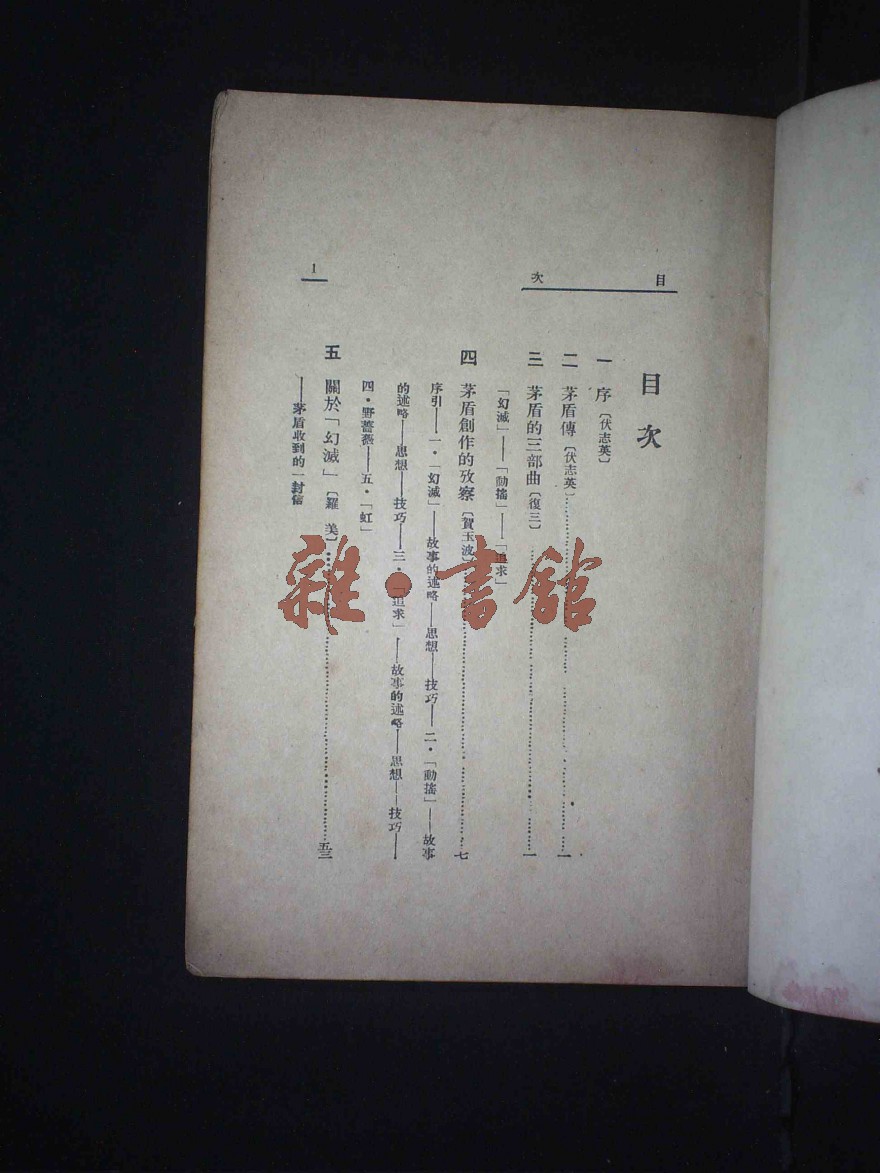 目次
1
目次
一 序〔伏志英〕
二 茅盾傳〔伏志英〕……一
三 茅盾的三部曲〔復三〕……一
「幻滅」——「動搖」——「追求」
四 茅盾創作的攷察〔賀玉波〕……七
序引——一・「幻滅」——故事的述略——思想——技巧——二・「動搖」——故事
的述略——思想——技巧——三・「追求」——故事的述略——思想——技巧——
四・野薔薇——五・「虹」
五 關於「幻滅」〔羅美〕……五三
——茅盾收到的一封信
雜・書館